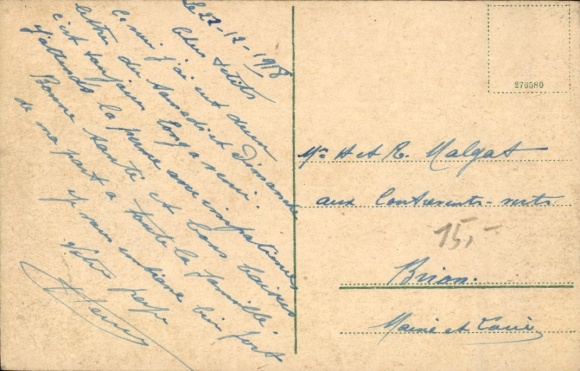 Le 22-12-1918
Chers petits
Ce soir j'ai eut deux
lettres du samedi et dimanche
c'est toujours long a venir.
J'attends la perme avec impatience
Bonne santé et bons baisers
de ma part a toute la famille.
Je vous embrasse bien fort
Votre papa
276580
H et R. Malgat
aux Contrevents-verts
15,-
Brion.
Maine et Loire